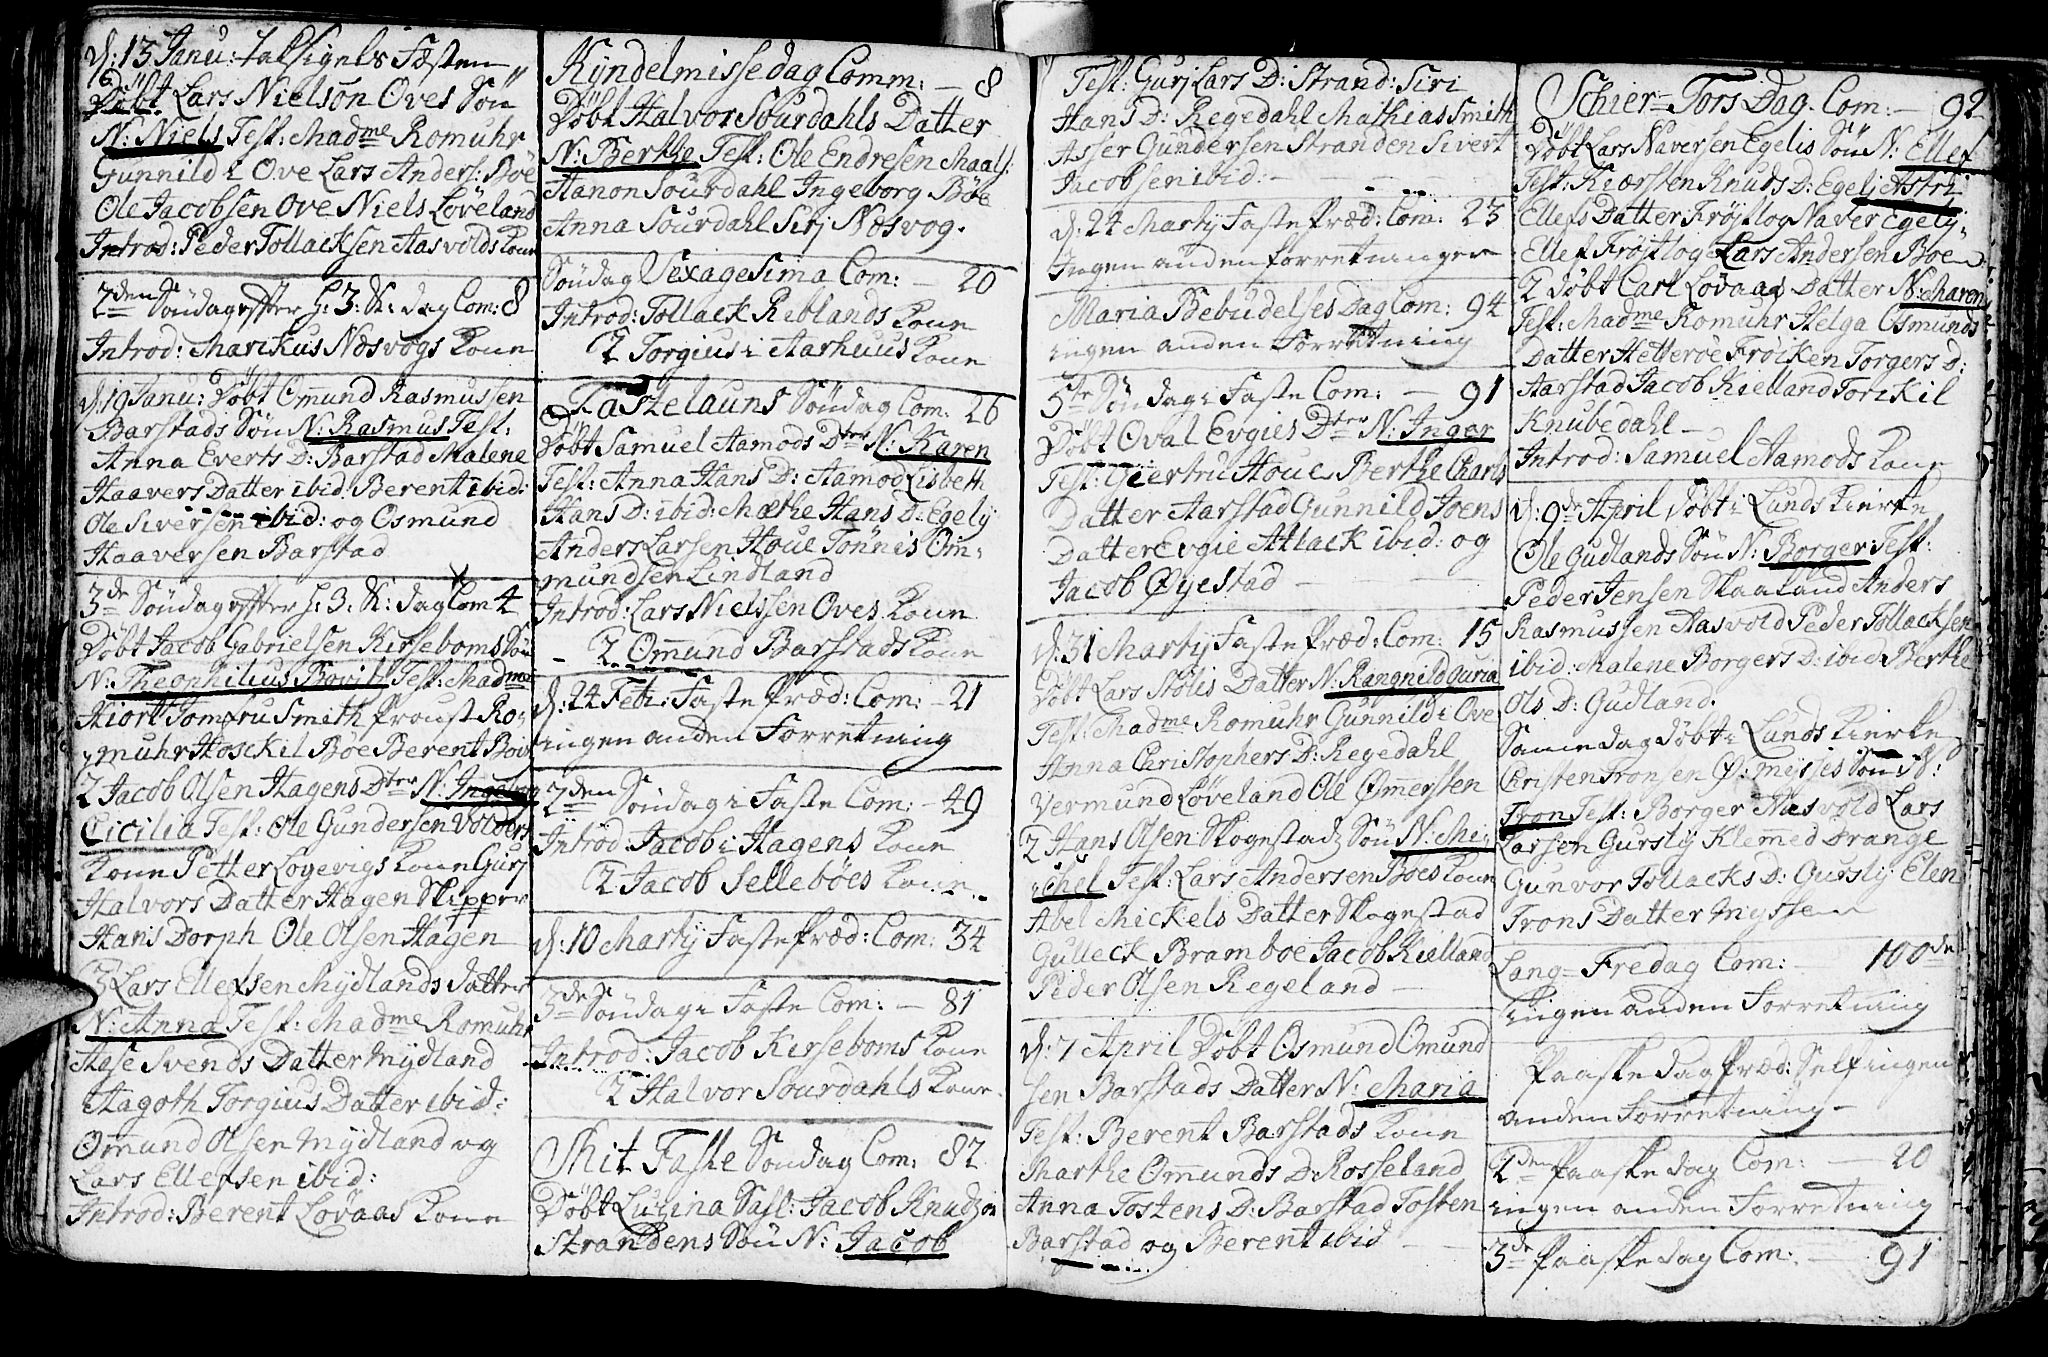 d: 13 Janu: Talsigels Festen
Döbt Lars Nielsön Oves Sön
N: Niels Test: Madme Romuhr
Gunnild i Ove Lars Anders: Böe
Ole Jacobsen Ove Niels Löveland
Introd: Peder Tollacksen Aasvolds Kone
2den Söndag effter H: 3: K: dag Com: 8
Introd: Marckus Næsvogs Kone
d: 19 Janu: Döbt Omund Rasmussen
Barstads Sön N: Rasmus Test:
Anna Everts D: Barstad Malene
Haavers Datter ibid: Berent ibid:
Ole Siversen ibid: og Osmund
Haaversen Barstad
3de Söndag effter H: 3: K: dag Com 4
Döbt Jacob Gabrielsen Kirseboms Sön
N: Theophilius Bovitz Test: Madme
Hiort Jomfru Smith Proust Ro-
muhr Hosckil Böe Berent Boit
2 Jacob Olsen Hagens Dtter N: Ingebog
Cicilia Test: Ole Gundersen Volders
Kone Petter Logevigs Kone Gurj
Halvors Datter Hagen Skipper
Hans Dorph Ole Olsen Hagen
3 Lars Ellefsen Mydlands Datter
N: Anna Test: Madme Romuhr
Aase Svends Datter Mydland
Aagoth Torgius Datter ibid:
Omund Olsen Mydland og
Lars Ellefsen ibid:
Introd: Berent Lovaas Kone
Kyndelmissedag Comm: – 8
Döbt Halvor Sourdahls Datter
N: Berthe Test: Ole Endresen Maals:
Hanon Sourdahl Ingeborg Böe
Anna Sourdahl Sirj Næsvog.
Söndag Sexagesima Com: – 20
Introd: Tollack Reblands Kone
2 Torgius i Aarhuus Kone
Fastelauns Söndag Com: 26
Döbt Samuel Aamods Dter N: Karen
Test: Anna Hans D: Aamod Lisbeth
Hans D: ibid: Mæthe Hans D: Egelj
Anders Larsen Houe Tönnis Om-
mundsen Lindland
Introd: Lars Nielssen Oves Kone
2 Omund Barstads Kone
d: 24 Feb: Faste Præd: Com: – 21
ingen anden Forretning
2den Söndag i Faste Com: – 49
Introd: Jacob i Hagens Kone
2 Jacob Selleböes Kone
d: 10 Martij Faste Præd: Com: 34
3de Söndag i Faste Com: – 81
Introd: Jacob Kirseboms Kone
2 Halvor Sourdahls Kone
Mit Faste Söndag Com: 82
Döbt Lucina Sahl: Jacob Knudzön
Strandens Sön N: Jacob
Test: Gurj Lars D: Strand: Siri
Hans D: Regedahl Mathias Smith
Asser Gundersen Stranden Sivert
Jacobsen ibid: –
d: 24 Martij Faste Præd: Com: 23
Ingen anden forretninger
Maria Bebudelses Dag Com: 94
ingen anden Forretning
5te Söndag i Faste Com: – 91
Döbt Oval Evgies Dter N: Inger
Test: Giertru Houe Berthe Carls
Datter Aarstad Gunnild Joens
Datter Evgie Atlack ibid: og
Jacob Øyestad –
d: 31 Martij Faste Præd: Com: 15
Döbt Lars Stölis Datter N: Rangnild Guria
Test: Madme Romuhr Gunnild i Ove
Anna Christophers D: Regedahl
Vermund Löveland Ole Ommersten
2 Hans Olsen Skogestads Sön N: Mi-
chel Test: Lars Andersen Boes Kone
Abel Mickels Datter Skogestad
Gulleck Bramboe Jacob Kielland
Peder Olsen Regeland –
d: 7 April Döbt Osmund Omund
sen Barstads Datter N: Maria
Test: Berent Barstads Kone
Marthe Omunds D: Rosseland
Anna Tostens D: Barstad Tosten
Barstad og Berent ibid
Schier-Tors Dag. Com: – 92
Döbt Lars Naversen Egelis Sön N: Ellef
Test: Kiersten Knuds D: Egelj Astri
Ellefs Datter Fröjtlog Naver Egelj,
Ellef Fröjtlog Lars Andersen Boen
2 Döbt Carl Lovaas Datter N: Maren
Test: Madme Romuhr Helga Osmunds
Datter Hetteröe Fröiken Torgers D:
Aarstad Jacob Kielland Torckil
Knubedahl –
Introd: Samuel Aamods Kone
d: 9de April Döbt i Lunds Kierke
Ole Gudlands Sön N: Borger Test:
Peder Jensen Skaaland Anders
Rasmussen Aasvold Peder Tollacksen
ibid: Malene Borgers D: ibid Berthe
Ols D: Gudland.
Same dag döbt i Lunds Kierke
Christen Tronsen Ø: Myssis Sön N:
Tron Test: Borger Aasvold Lars
Larsen Gurslij Klemed Drange
Gunvor Tollacks D: Gurslij Elen
Trons Datter Myssen
Lang-Fredag Com: – 100de
Ingen anden Forretning
Paaske dag Præd: Self ingen
anden Forretning –
2den Paaske dag Com: – 20
ingen anden Forretning
3de Paaske dag Com: – 91